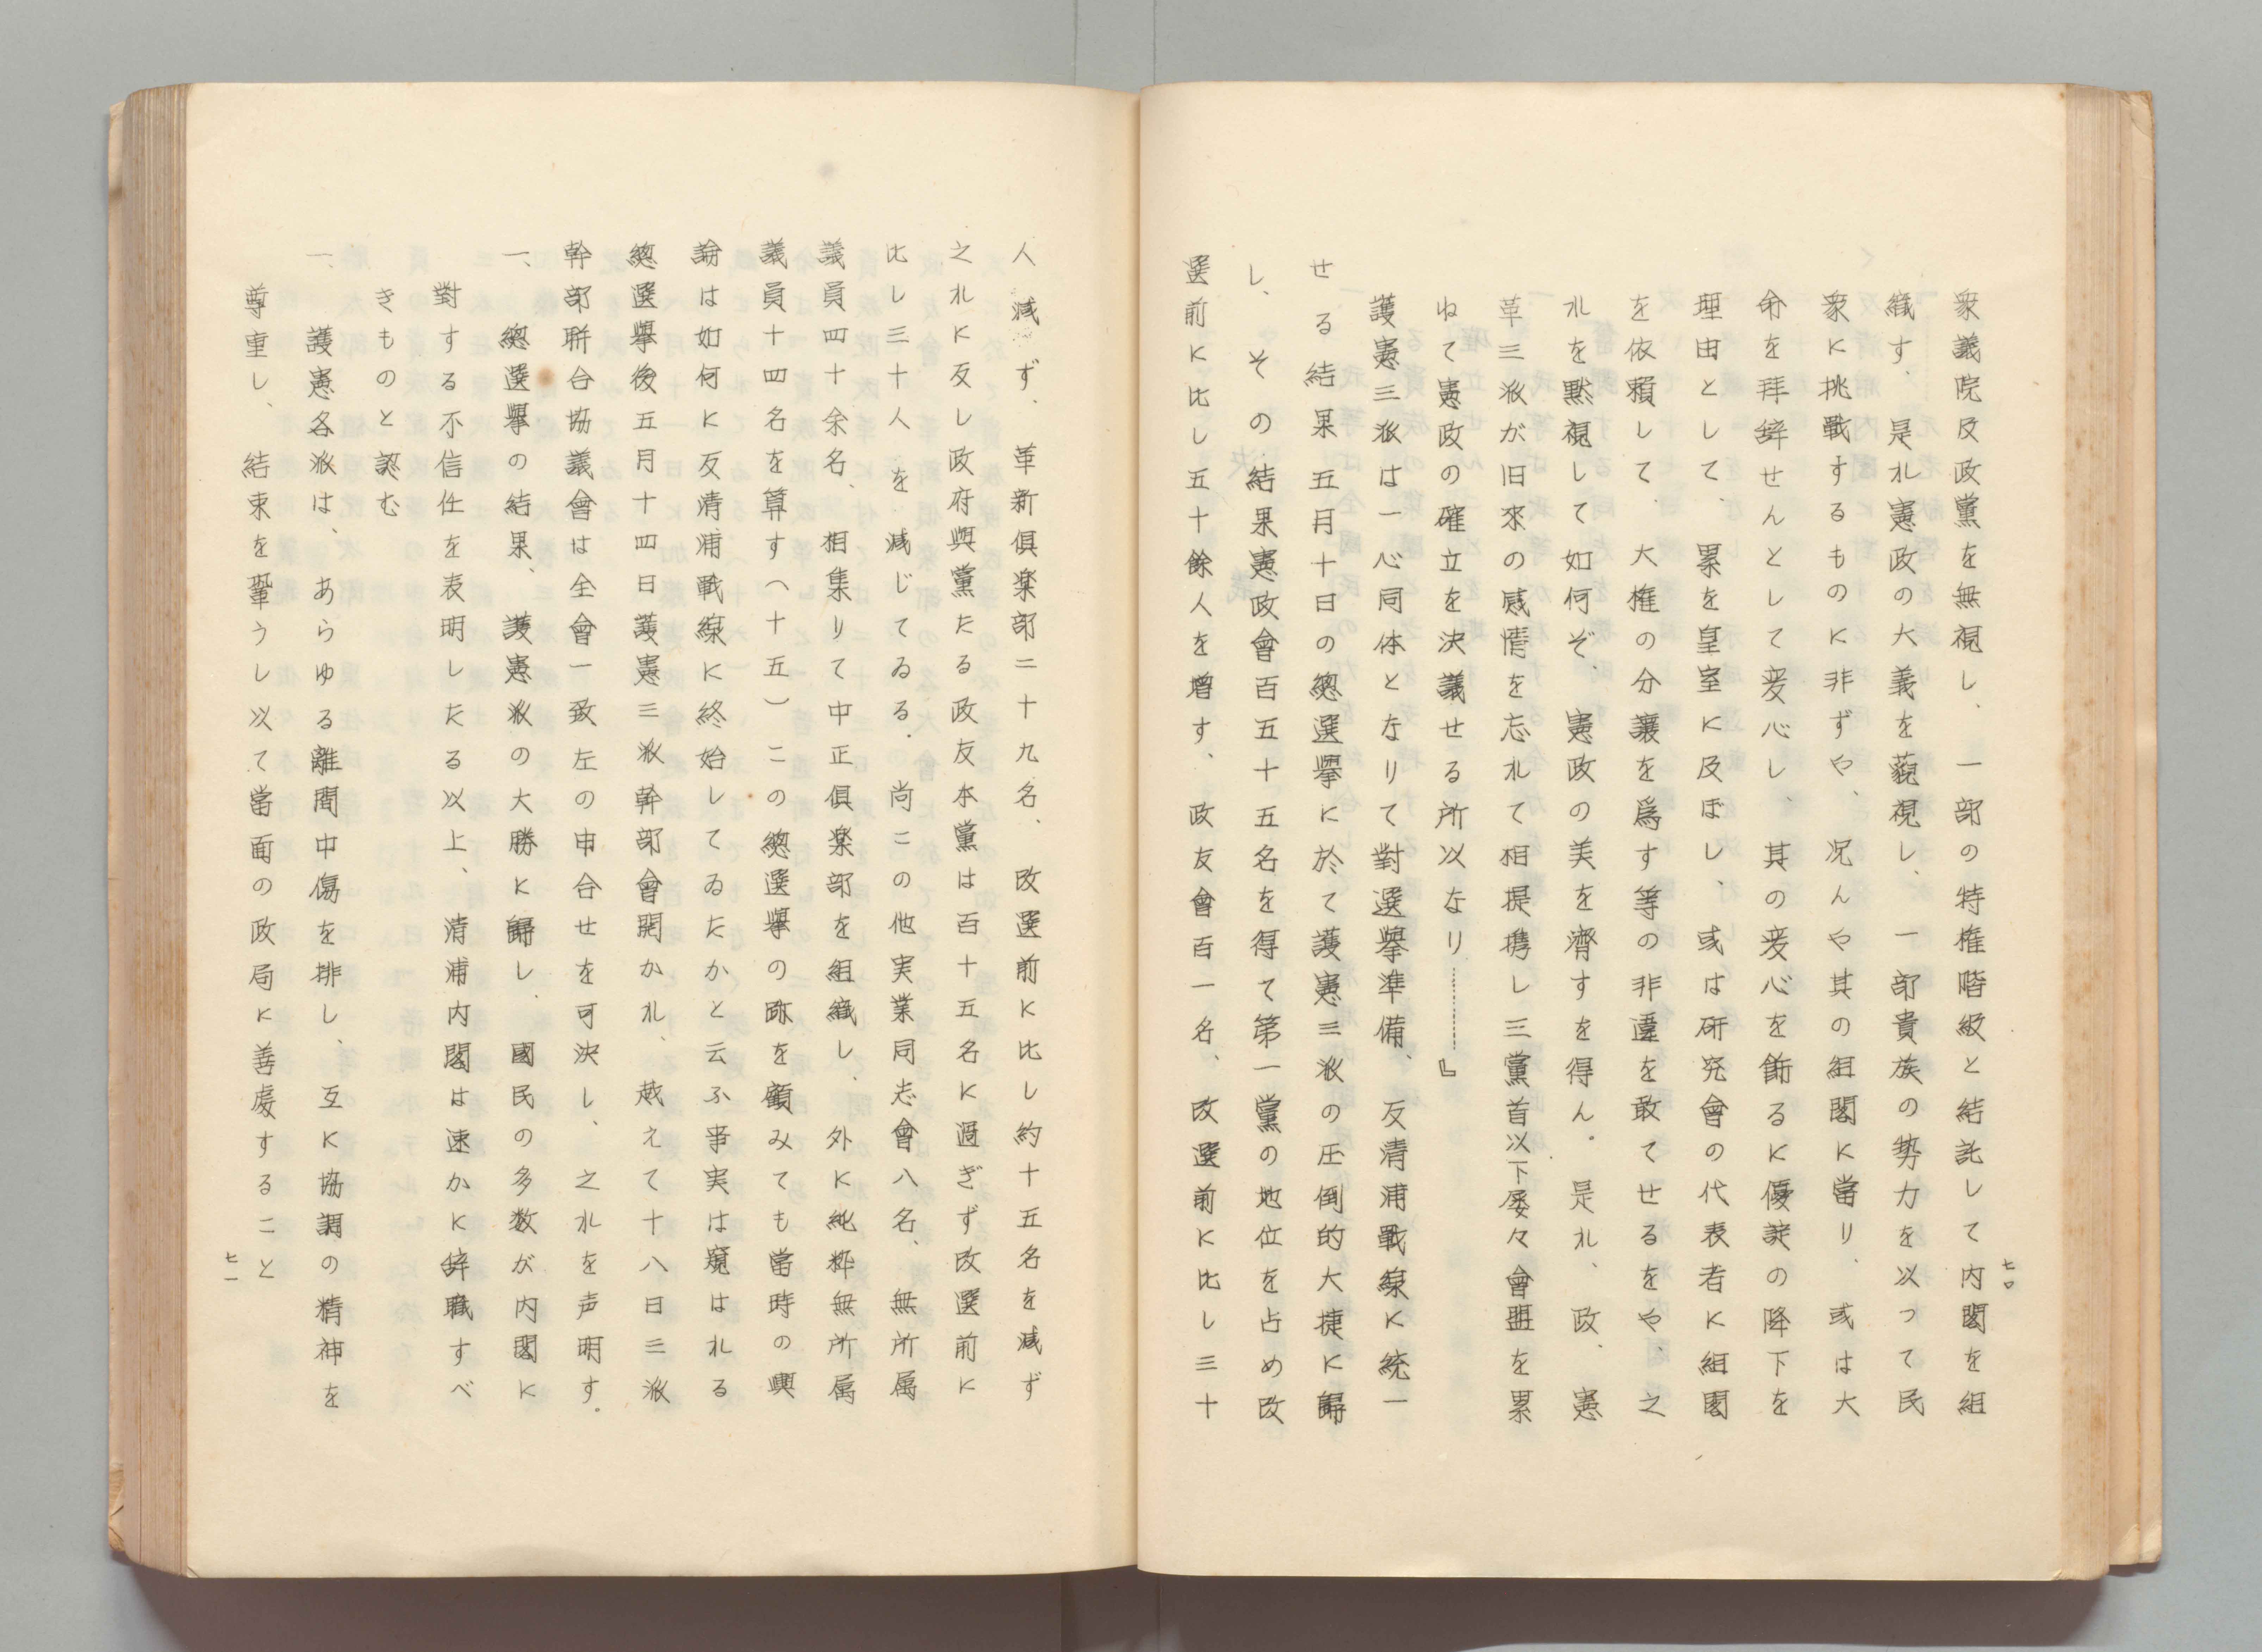 衆議院及政黨を無視し、一部の特権階級と結託して内閣を組
織す、是れ憲政の大義を藐視し、一部貴族の勢力を以って民
衆に挑戰するものに非ずや、况んや其の組閣に當り、或は大
命を拜辞せんとして変心し、其の変心を飾るに優諚の降下を
理由として、累を皇室に及ぼし、或は研究會の代表者に組閣
を依賴して、大権の分讓を爲す等の非違を敢てせるをや、之
れを黙視して如何ぞ、憲政の美を濟すを得ん。是れ、政、憲
革三派が旧來の感情を忘れて相提携し三黨首以下屡々會盟を累
ねて憲政の確立を決議せる所以なり………』
護憲三派は一心同体となりて對選擧準備、反清浦戰線に統一
せる結果五月十日の總選擧に於て護憲三派の圧倒的大捷に歸
し、その結果憲政會百五十五名を得て第一黨の地位を占め改
選前に比し五十餘人を増す、政友會百一名、改選前に比し三十
七〇
人減ず、革新俱楽部二十九名、改選前に比し約十五名を減ず
之れに反し政府與黨たる政友本黨は百十五名に過ぎず改選前に
比し三十人を減じてゐる.尚この他実業同志會八名、無所属
議員四十余名、相集りて中正俱楽部を組織し、外に純粹無所属
議員十四名を算す(十五)この總選擧の跡を顧みても當時の輿
論は如何に反清浦戰線に終始してゐたかと云ふ事実は窺はれる
總選擧後五月十四日護憲三派幹部會開かれ、越えて十八日三派
幹部聯合協議會は全會一致左の申合せを可決し、之れを声明す。
一、總選擧の結果、護憲派の大勝に歸し、國民の多数が内閣に
對する不信任を表明したる以上、清浦内閣は速かに辞職すべ
きものと認む
一、護憲各派は、あらゆる離間中傷を排し、互に協調の精神を
尊重し、結束を鞏うし以て當面の政局に善處すること
七一